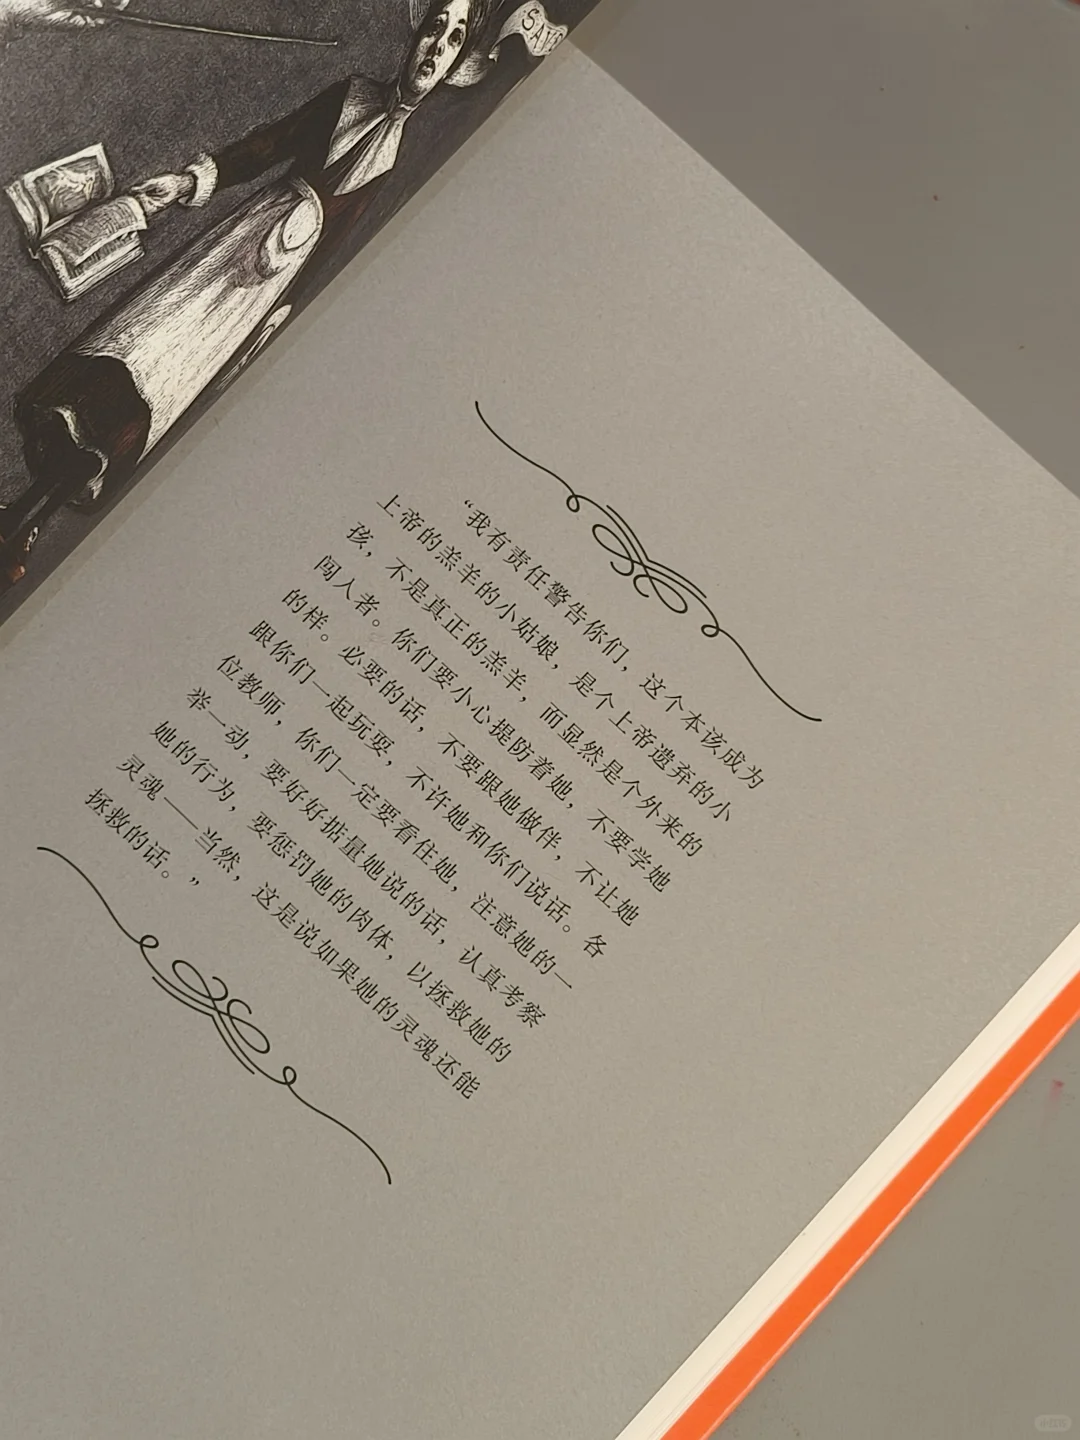 SAYS
“我有责任警告你们，这个本该成为
上帝的羔羊的小姑娘，是个上帝遗弃的小
孩，不是真正的羔羊，而显然是个外来的
闯入者。你们要小心提防着她，不要学她
的样。必要的话，不要跟她做伴，不让她
跟你们一起玩耍，不许她和你们说话。各
位教师，你们一定要看住她，注意她的一
举一动，要好好掂量她说的话，认真考察
她的行为，要惩罚她的肉体，以拯救她的
灵魂——当然，这是说如果她的灵魂还能
拯救的话。”
小红书